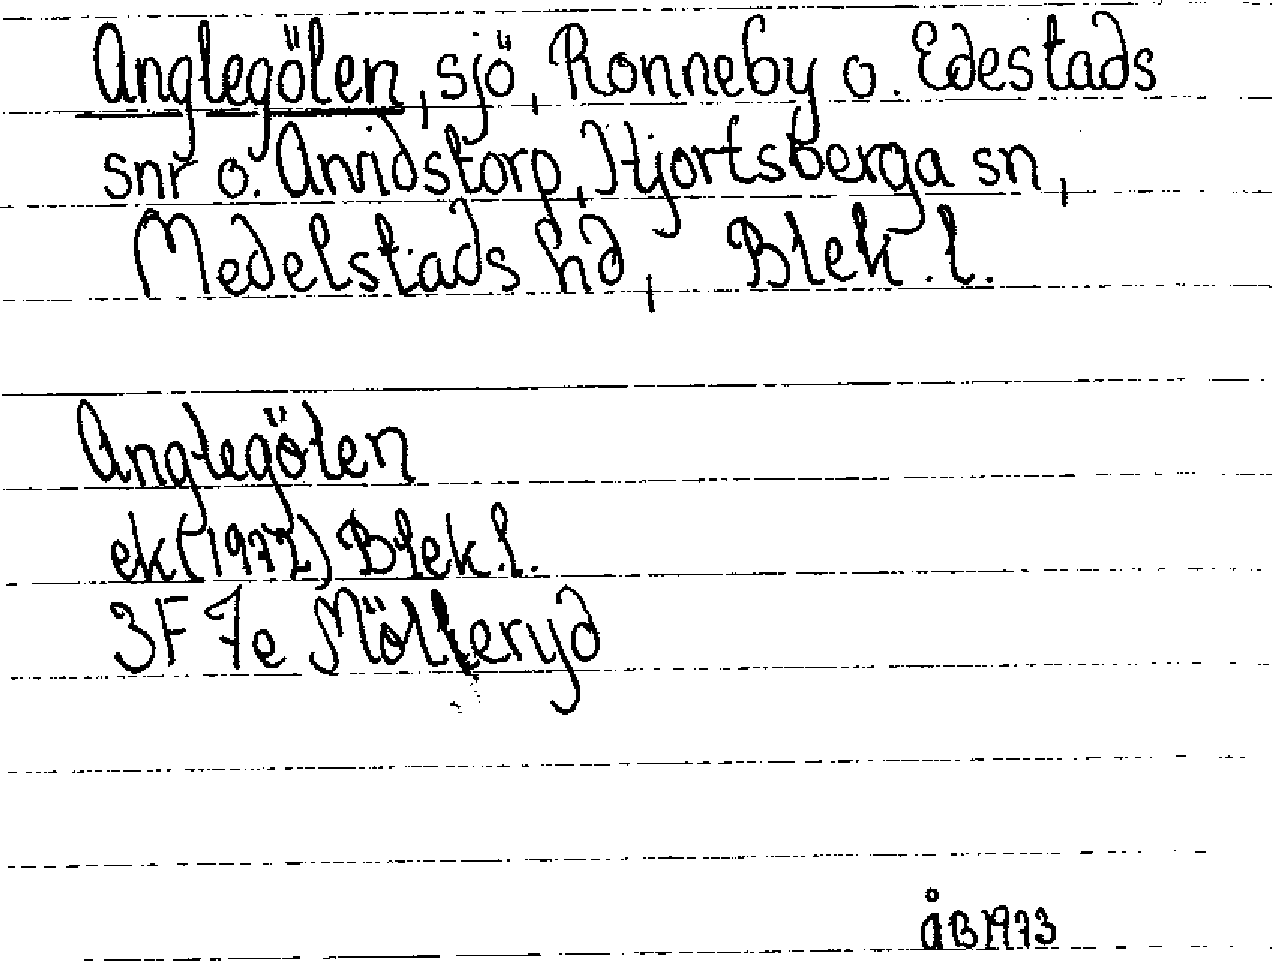 Anglegölen, sjö, Ronneby o. Edestads
snr o. Arvidstorp, Hjortsberga sn,
Medelstads hd, Blek. l.
Anglegölen
ek (1972) Blek. l.
3F 7e Mölleryd
ÅB 1973